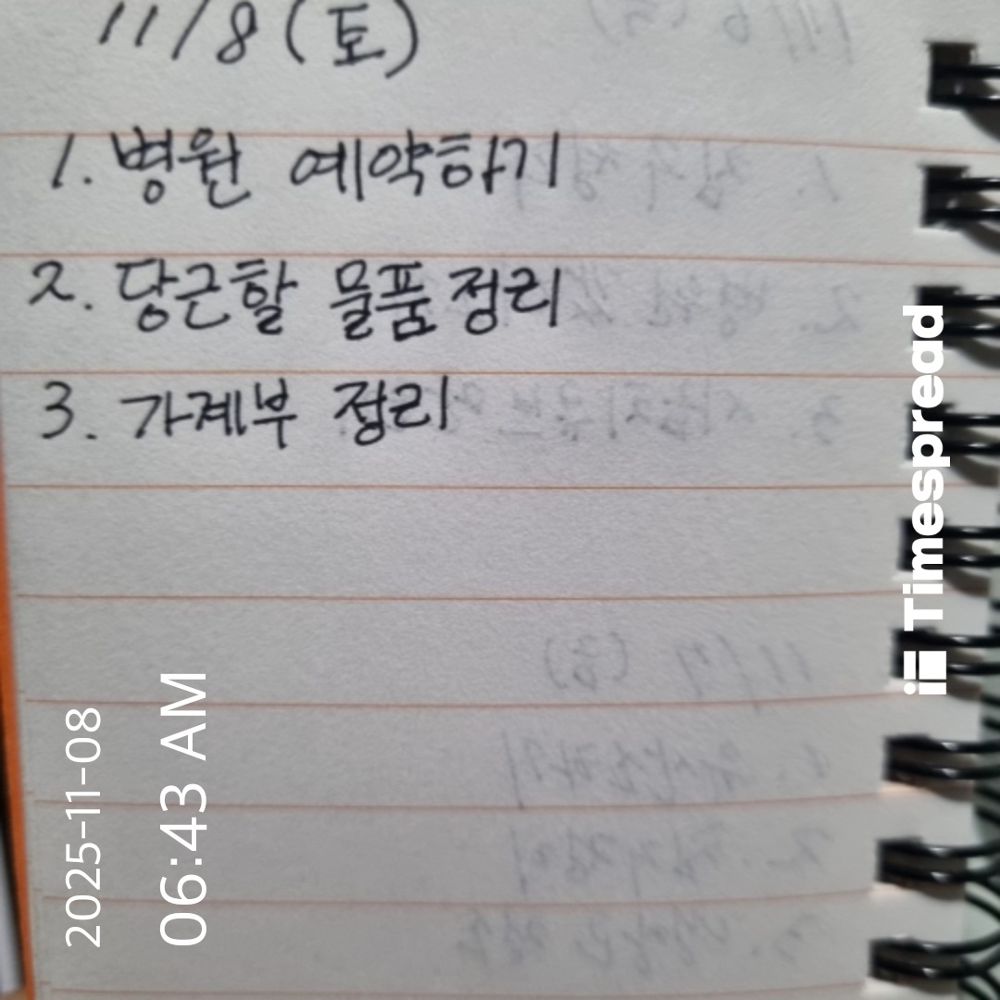 11/8(토)
1. 병원 예약하기
2. 당근할 물품 정리
3. 가계부 정리
Timespread
2025-11-08
06:43 AM